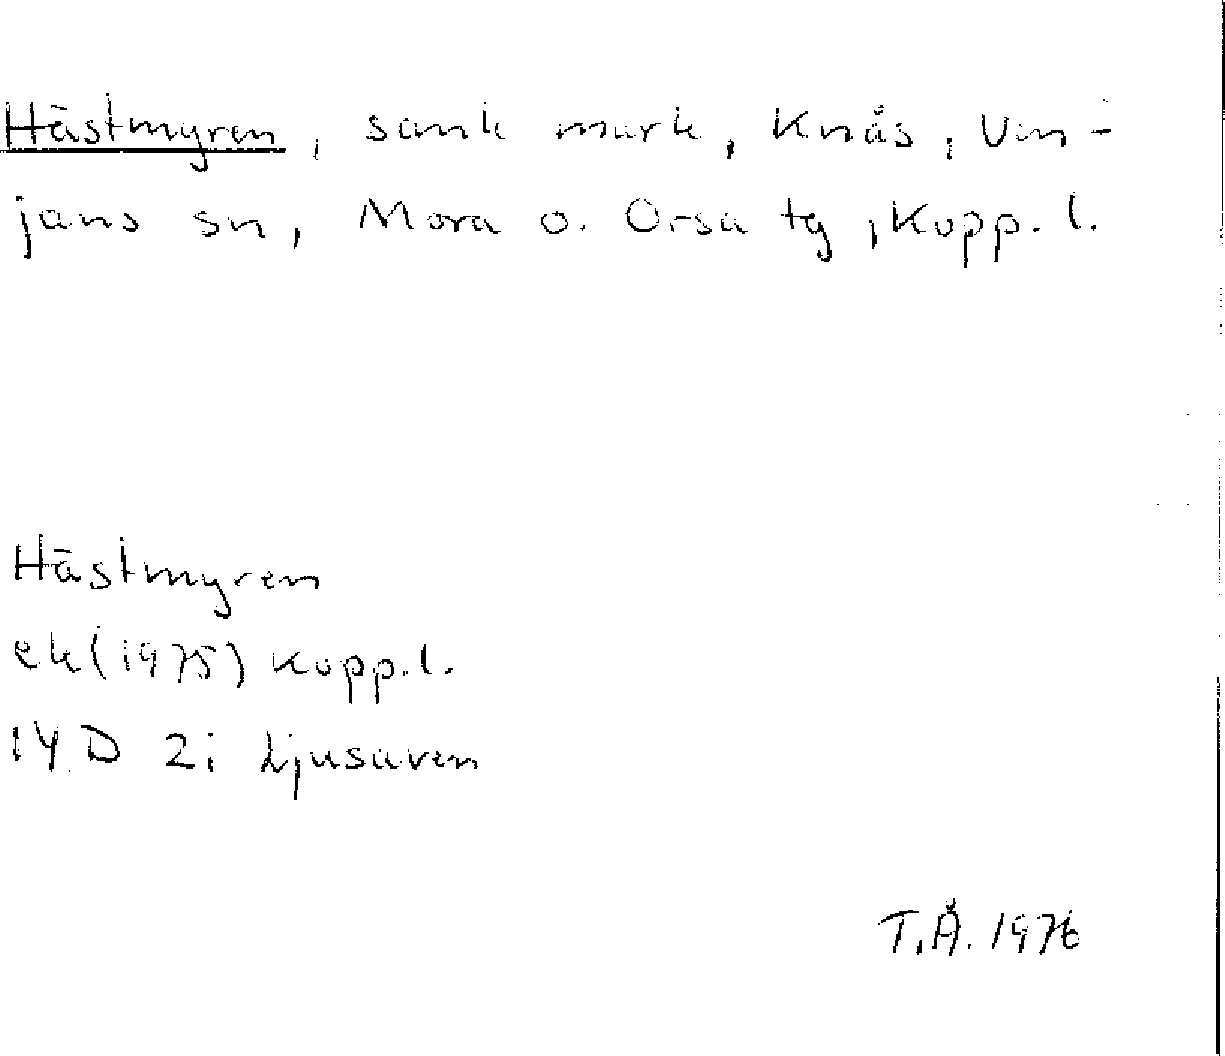 Hästmyren, sank mark, Knås, Ven-
jans sn, Mora o. Orsa tg, Kopp. l.
Hästmyren
ek (1975) Kopp. l.
14 D 2i Ljusaven
T.Å. 1976